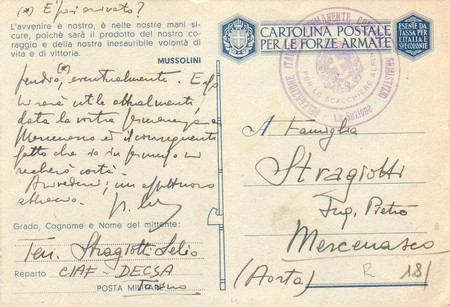 (*) E' poi arrivato?
L'avvenire è nostro, è nelle nostre mani si-
cure, poichè sarà il prodotto del nostro co-
raggio e della nostra inesauribile volontà di
vita e di vittoria.
MUSSOLINI
(*)
eventualmente.
utile attualmente,
data la vostra permanenza a
Mercenasco ed il conseguente
fatto che io in permesso mi
recherò costà.
Arrivederci; un affettuoso
abbraccio.
Grado, Cognome e Nome del mittente:
Ten. Stragiotti Lelio
Reparto CIAF - DECSA
POSTA MILITARE Torino
CARTOLINA POSTALE
PER LE FORZE ARMATE
ESENTE DA
TASSA PER
L'ITALIA
E SUE COLONIE
PER LO SCACCHIERE ALPI
Sezione
A Famiglia
Stragiotti
Ing. Pietro
Mercenasco
(Aosta)
R 181